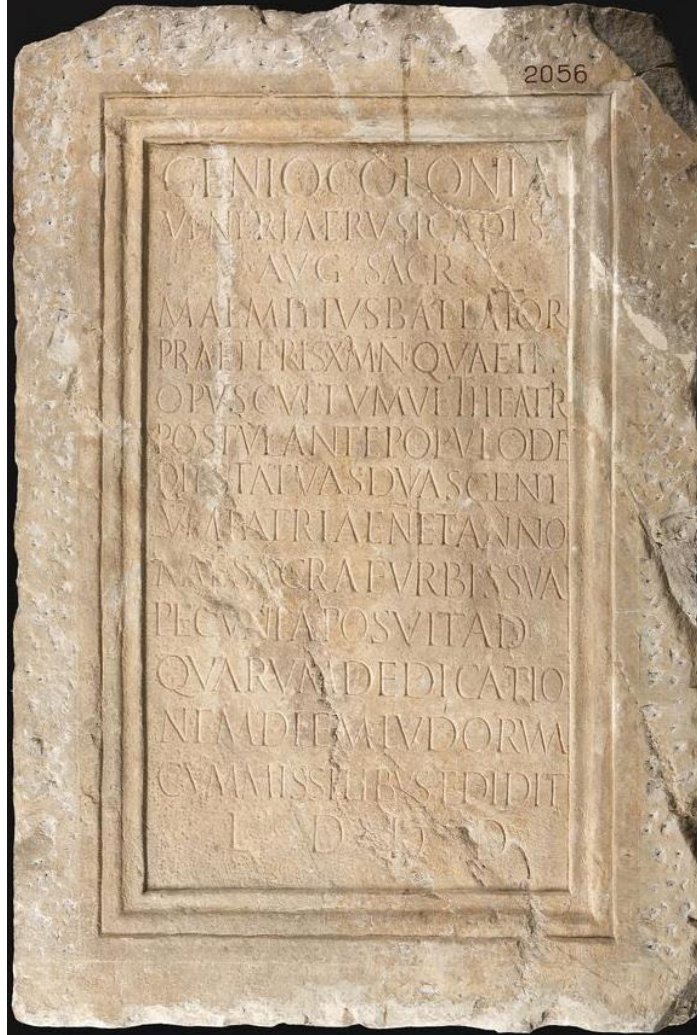 2056
GENIO COLONIA
VENERIAE RVSICADIS
AVG SACR
M AEMILIVS BALLATOR
PRAETER IS X M N QVAE IN
OPVS CVLTVMVE THEATR
POSTVLANTE POPVLO DE
DIT STATVAS DVAS GENI
VM PATRIAE N ET ANNO
NAE SACRAE VRBIS SVA
PECVNIA POSVIT AD
QVARVM DEDICATIO
NEM DIEM LVDORVM
CVM MISSILIBVS EDIDIT
L D D D